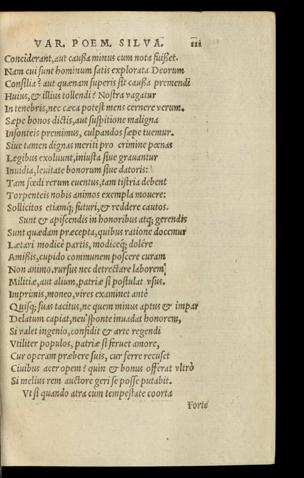 VAR. POEM. SILVA. 111
Conciderant, aut caußa minus cum nota fuisset.
Nam cui sunt hominum satis explorata Deorum
Consilia? aut quænam superis sit caußa premendi
Huius, & illius tollendi? Nostra vagatur
In tenebris, nec cæca potest mens cernere verum.
Sæpe bonos dictis, aut suspitione maligna
Insonteis premimus, culpandos sæpe tuemur.
Siue tamen dignas meriti pro crimine pœnas
Legibus exoluunt, iniusta siue grauantur
Inuidia, leuitate bonorum siue datoris:
Tam fœdi rerum euentus, tam tistria debent
Torpenteis nobis animos exempla mouere:
Sollicitos etiamq; futuri, & reddere cautos.
Sunt & apiscendis in honoribus atq; gerendis
Sunt quædam præcepta, quibus ratione docemur
Lætari modicè partis, modiceq; dolére
Amissis, cupido communem poscere curam
Non animo. rursus nec detrectare laborem,
Militiæ, aut alium, patriæ si postulat vsus.
Imprimis, moneo, vires examinet antè
Quisq; suas tacitus, ne quem minus aptus & impar
Delatum capiat, neu' sponte inuadat honorem,
Si valet ingenio, confidit & arte regendi
Vtiliter populos, patriæ si feruet amore,
Cur operam præbere suis, cur ferre recuset
Ciuibus acer opem? quin & bonus offerat vltrò
Si melius rem auctore geri se posse putabit.
Vt si quando atra cum tempestate coorta
Forte